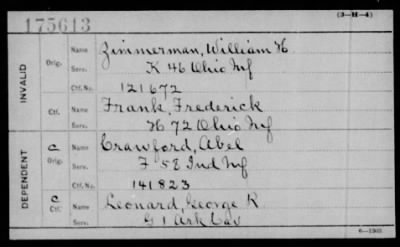 175613
(3—H—4)
INVALID
Orig.
Name Zimmerman, William H.
Serv. K 46 Ohio Inf
Ctf. No. 121672
Ctf.
Name Frank, Frederick
Serv. H 72 Ohio Inf
DEPENDENT
C
Orig.
Name Crawford, Abel
Serv. F 58 Ind Inf
Ctf. No. 141823
C
Ctf.
Name Leonard, George R
Serv. G 1 Ark Cav
6—1903